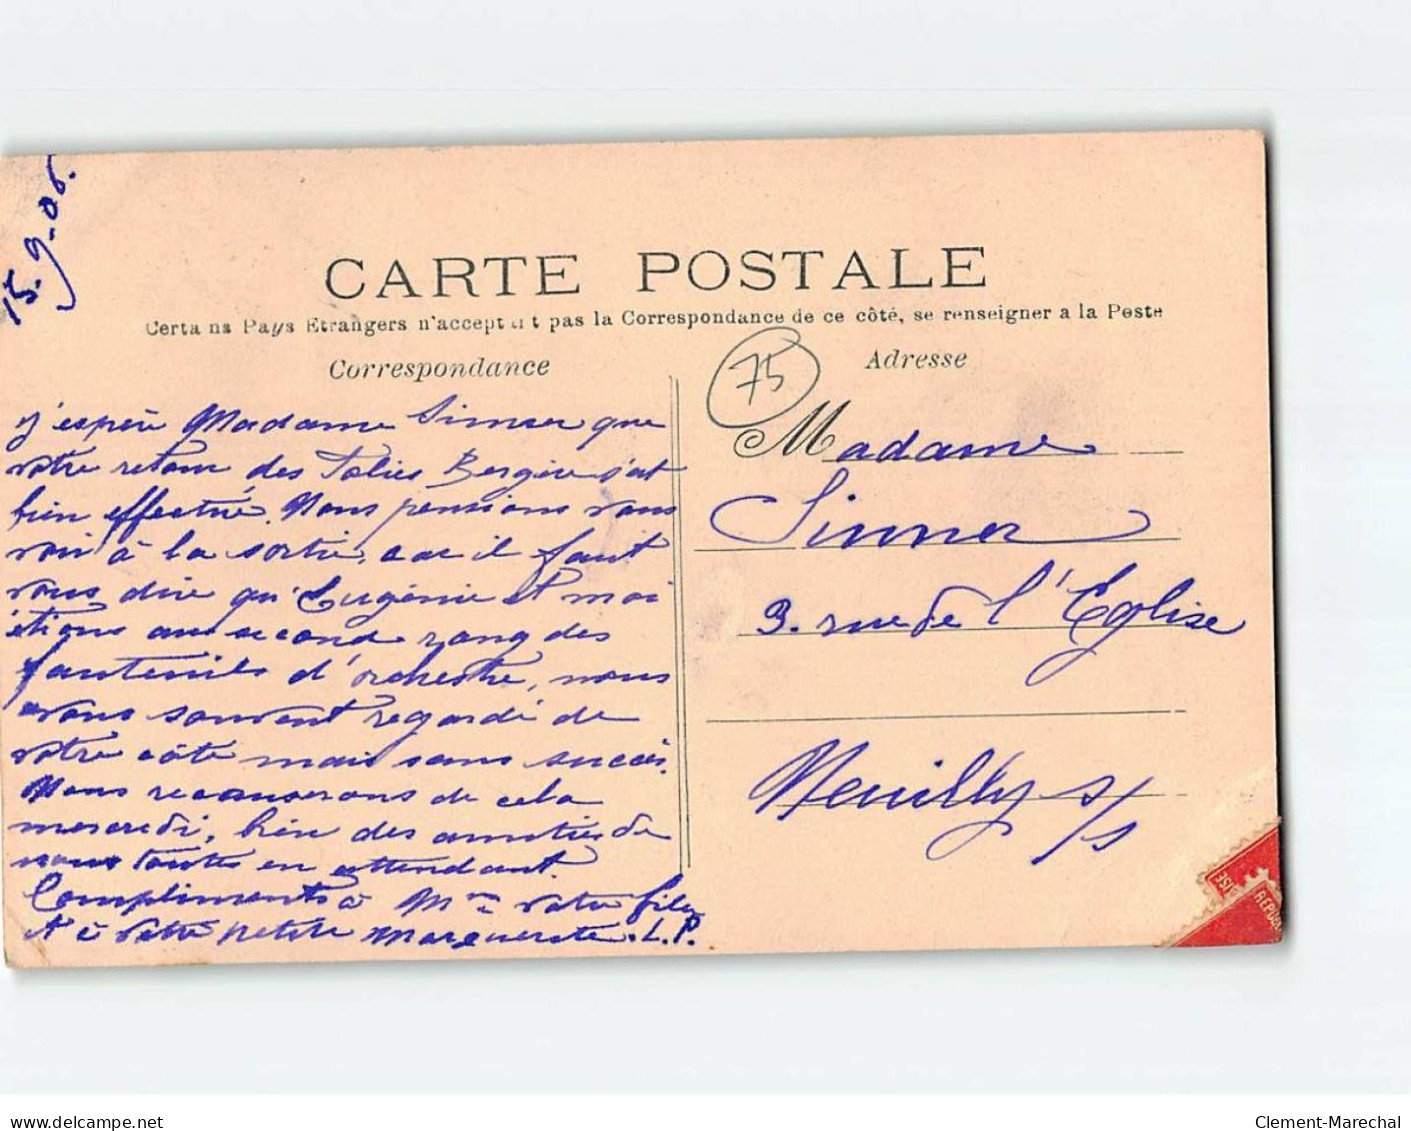 15.9.06.
CARTE POSTALE
Certains Pays Etrangers n'acceptant pas la Correspondance de ce côté, se renseigner a la Poste
Correspondance
J'espère Madame Sinner que
votre retour des Folies Bergère s'est
bien effectué. Nous pensions vous
voir à la sortie, car il faut
vous dire qu'Eugénie et moi
étions au second rang des
fauteuils d'orchestre, nous
avons souvent regardé de
votre côté mais sans succès.
Nous recauserons de cela
mercredi, bien des amitiés de
nous toutes en attendant.
Compliments à Mme votre fille
et à votre petite Marguerite. L.P.
75
Adresse
Madame
Sinner
3. rue de l'Eglise
Neuilly s/s
REPUB
Clement-Marechal
www.delcampe.net